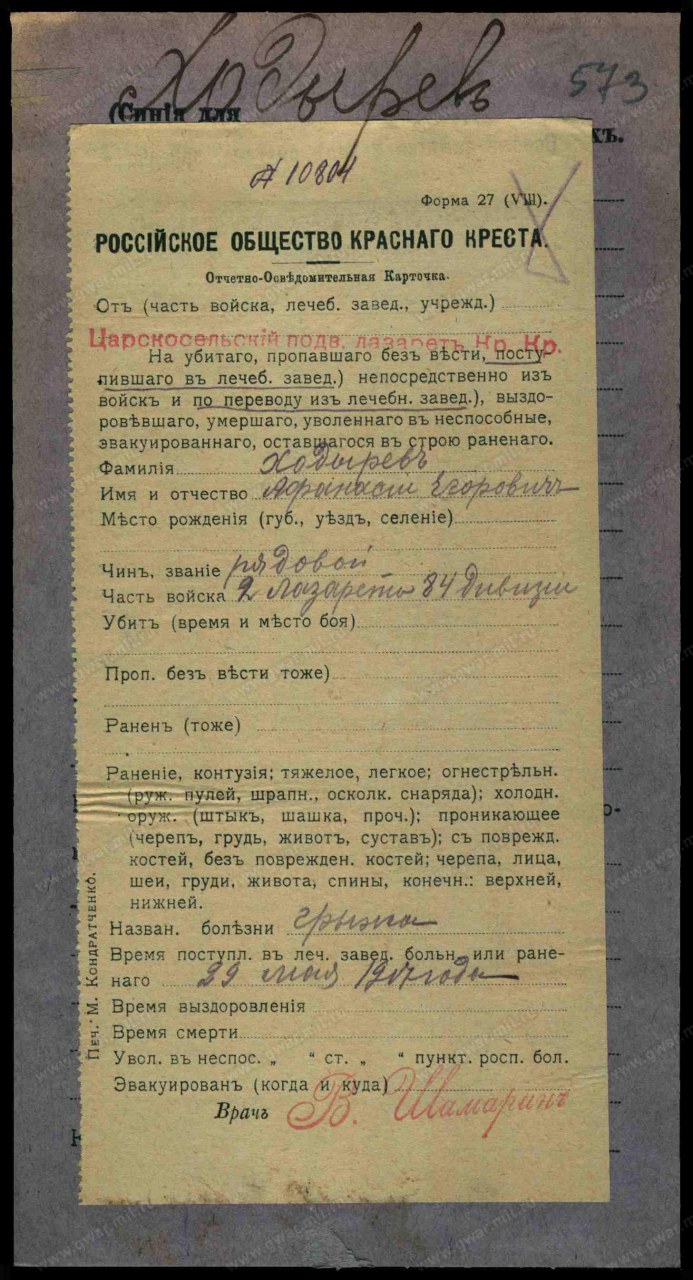 Ходыревъ
573
(Синія для
хъ.
№ 10804
Форма 27 (VIII).
РОССІЙСКОЕ ОБЩЕСТВО КРАСНАГО КРЕСТА.
Отчетно-Освѣдомительная Карточка.
Отъ (часть войска, лечеб. завед., учрежд.)
Царскосельскій подв. лазаретъ Кр. Кр.
На убитаго, пропавшаго безъ вѣсти, посту-
пившаго въ лечеб. завед.) непосредственно изъ
войскъ и по переводу изъ лечебн. завед.), выздо-
ровѣвшаго, умершаго, уволеннаго въ неспособные,
эвакуированнаго, оставшагося въ строю раненаго.
Фамилія Ходыревъ
Имя и отчество Афанасiи Егоровичъ
Мѣсто рожденія (губ., уѣздъ, селеніе)
Чинъ, званіе рядовой
Часть войска 2 лазарета 84 дивизiи
Убитъ (время и мѣсто боя)
Проп. безъ вѣсти тоже)
Раненъ (тоже)
Раненіе, контузія; тяжелое, легкое; огнестрѣльн.
(руж. пулей, шрапн., осколк. снаряда); холодн.
оруж. (штыкъ, шашка, проч.); проникающее
(черепъ, грудь, животъ, суставъ); съ поврежд.
костей, безъ поврежден. костей; черепа, лица,
шеи, груди, живота, спины, конечн.: верхней,
нижней.
Назван. болѣзни грыжа
Время поступл. въ леч. завед. больн. или ране-
наго 29 мая 1917 года
Время выздоровленія
Время смерти
Увол. въ неспос. „ “ ст. „ “ пункт. росп. бол.
Эвакуированъ (когда и куда)
Врачъ В. Шамаринъ
Печ. М. Кондратченко.
www.gwar.mil.ru